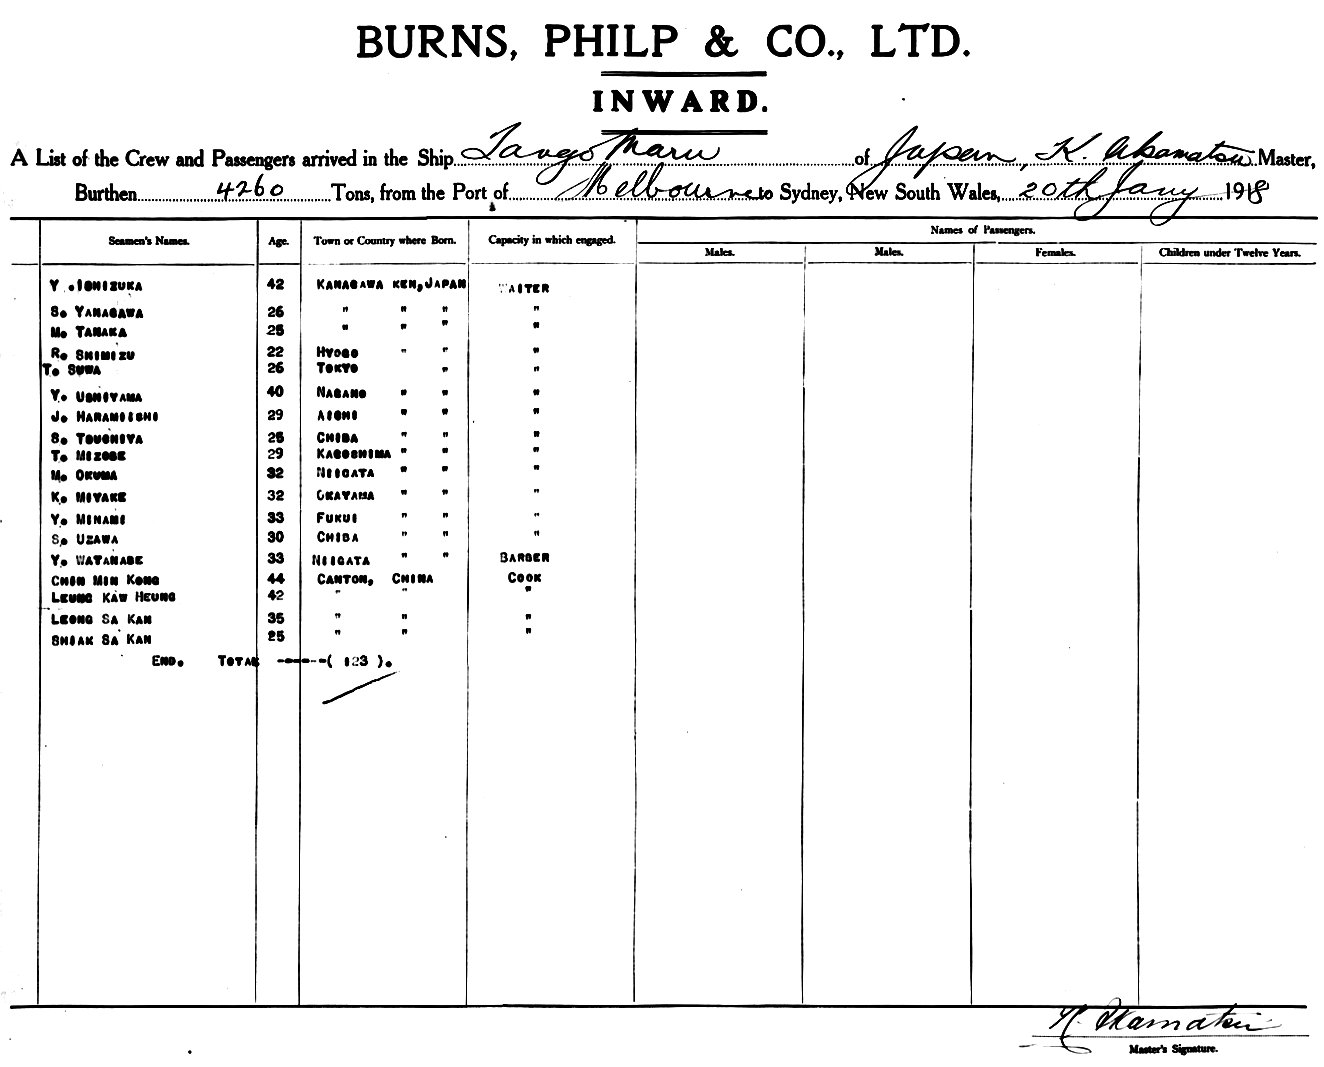 BURNS, PHILP & CO., LTD.
INWARD.
A List of the Crew and Passengers arrived in the Ship Tango Maru of Japan, K. Akamatsu Master,
Burthen 4260 Tons, from the Port of Melbourne to Sydney, New South Wales, 20th Jany 1918
Names of Passengers.
Seamen's Names. Age. Town or Country where Born. Capacity in which engaged. Males. Males. Females. Children under Twelve Years.
Y. ISHIZUKA 42 KANAGAWA KEN, JAPAN WAITER
S. YANAGAWA 26 " " " "
M. TANAKA 25 " " " "
R. SHIMIZU 22 HYOGO " " "
T. SUWA 26 TOKYO " "
Y. USHIYAMA 40 NAGANO " " "
J. HARAMIISHI 29 AICHI " " "
S. TSUCHIYA 25 CHIBA " " "
T. MIZOBE 29 KAGOSHIMA " " "
M. OKUMA 32 NIIGATA " " "
K. MIYAKE 32 OKAYAMA " " "
Y. MINAMI 33 FUKUI " " "
S. UZAWA 30 CHIBA " " "
Y. WATANABE 33 NIIGATA " " BARBER
CHIN MIN KONG 44 CANTON, CHINA COOK
LEUNG KAW HEUNG 42 " " "
LEONG SA KAN 35 " " "
SHIAK SA KAN 25 " " "
END. TOTAL ------( 123 ).
K. Akamatsu
Master's Signature.